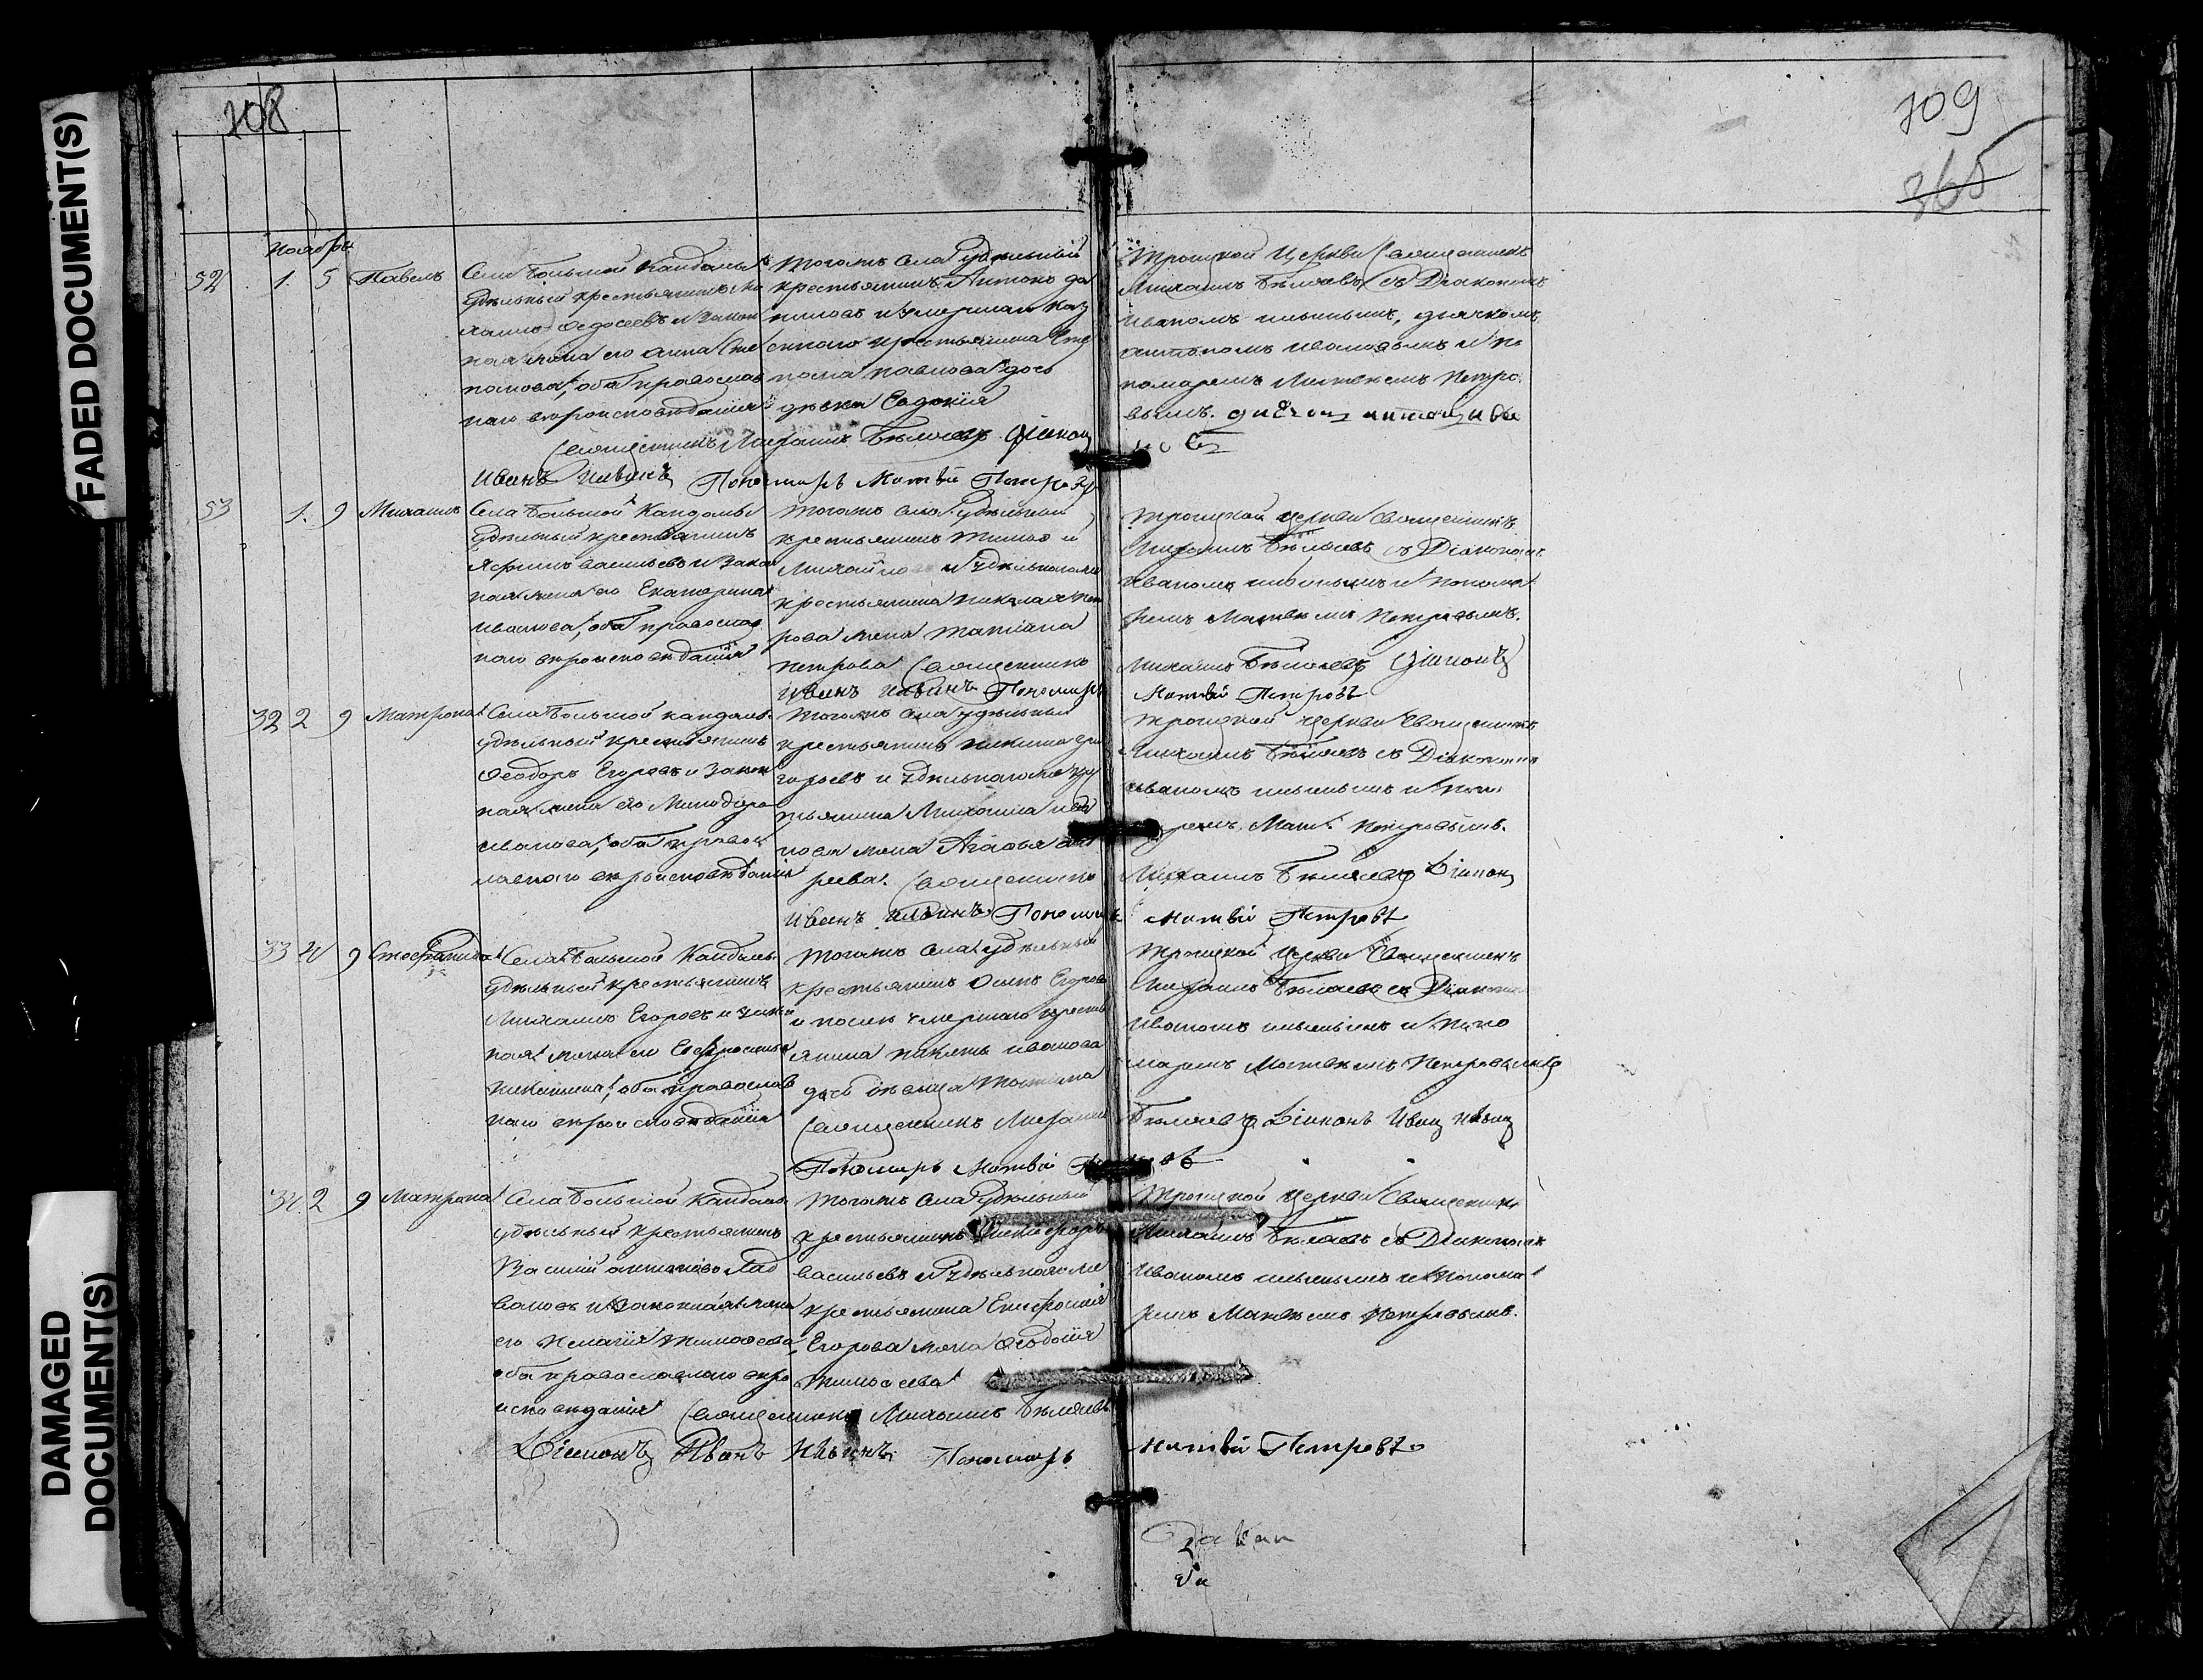 FADED DOCUMENT(S)
DAMAGED
DOCUMENT(S)
708
709
365
Ноября
52 1. 5 Павелъ
Села Большой Кандалы
удѣльный крестьянинъ Ми
хаилъ Федосеевъ и закон
ная жена его Анна Сте
панова, оба православ
наго вѣроисповѣданія
тогожъ села удѣльный
крестьянинъ Антонъ Да
ниловъ и умершаго каз
еннаго крестьянина Сте
пана Павлова дочь
дѣвка Евдокія
Троицкой Церкви Священникъ
Михаилъ Бѣляевъ съ Діакономъ
Иваномъ Ильинымъ, дьячкомъ
Антономъ Ивановымъ и По
номаремъ Матвѣемъ Петро
вымъ.
Священникъ Михаилъ Бѣляевъ Діаконъ
Иванъ Ильинъ Пономарь Матвѣй Петровъ
53 1. 9 Михаилъ
Села Большой Кандалы
удѣльный крестьянинъ
Ефимъ Васильевъ и закон
ная жена его Екатерина
Иванова, оба православ
наго вѣроисповѣданія
тогожъ села удѣльный
крестьянинъ Тимофей
Михайловъ и удѣльнагожъ
крестьянина Николая Пет
рова жена Татіана
Петрова
Троицкой церкви Священникъ
Михаилъ Бѣляевъ съ Діакономъ
Иваномъ Ильинымъ и Понома
ремъ Матвѣемъ Петровымъ.
Священникъ Михаилъ Бѣляевъ Діаконъ
Иванъ Ильинъ Пономарь Матвѣй Петровъ
32 2 9 Матрона
Села Большой Кандалы
удѣльный крестьянинъ
Феодоръ Егоровъ и закон
ная жена его Минодора
Иванова, оба правос
лавнаго вѣроисповѣданія
тогожъ села удѣльный
крестьянинъ Никита Гри
горьевъ и удѣльнагожъ крес
тьянина Михаила Ива
нова жена Агафья
Троицкой церкви Священникъ
Михаилъ Бѣляевъ съ Діакономъ
Иваномъ Ильинымъ и Поно
ремъ Матв Петровымъ.
Священникъ Михаилъ Бѣляевъ Діаконъ
Иванъ Ильинъ Пономарь Матвѣй Петровъ
33 4 9 Стефанида
Села Большой Кандалы
удѣльный крестьянинъ
Михаилъ Егоровъ и закон
ная жена его Евфросинья
Никитина, оба православ
наго вѣроисповѣданія
тогожъ села удѣльный
крестьянинъ Осипъ Егоровъ
и послѣ умершаго кресть
янина Иванова
дочь дѣвица Татіана
Троицкой Церкви Священникъ
Михаилъ Бѣляевъ съ Діакономъ
Иваномъ Ильинымъ и Поно
маремъ Матвѣемъ Петровымъ
Священникъ Михаилъ Бѣляевъ Діаконъ Иванъ Ильинъ
Пономарь Матвѣй Петровъ
34. 2 9 Матрона
Села Большой Кандалы
удѣльный крестьянинъ
Василій Антоновъ Лад
вановъ и законная жена
его Пелагія Тимофеева,
оба православнаго вѣро
исповѣданія
тогожъ села удѣльный
крестьянинъ Никифоръ
Васильевъ и удѣльнагожъ
крестьянина
Егорова жена Феодосія
Тимофеева
Троицкой церкви Священникъ
Михаилъ Бѣляевъ съ Діакономъ
Иваномъ Ильинымъ и Понома
ремъ Матвѣемъ Петровымъ.
Священникъ Михаилъ Бѣляевъ
Діаконъ Иванъ Ильинъ Пономарь Матвѣй Петровъ